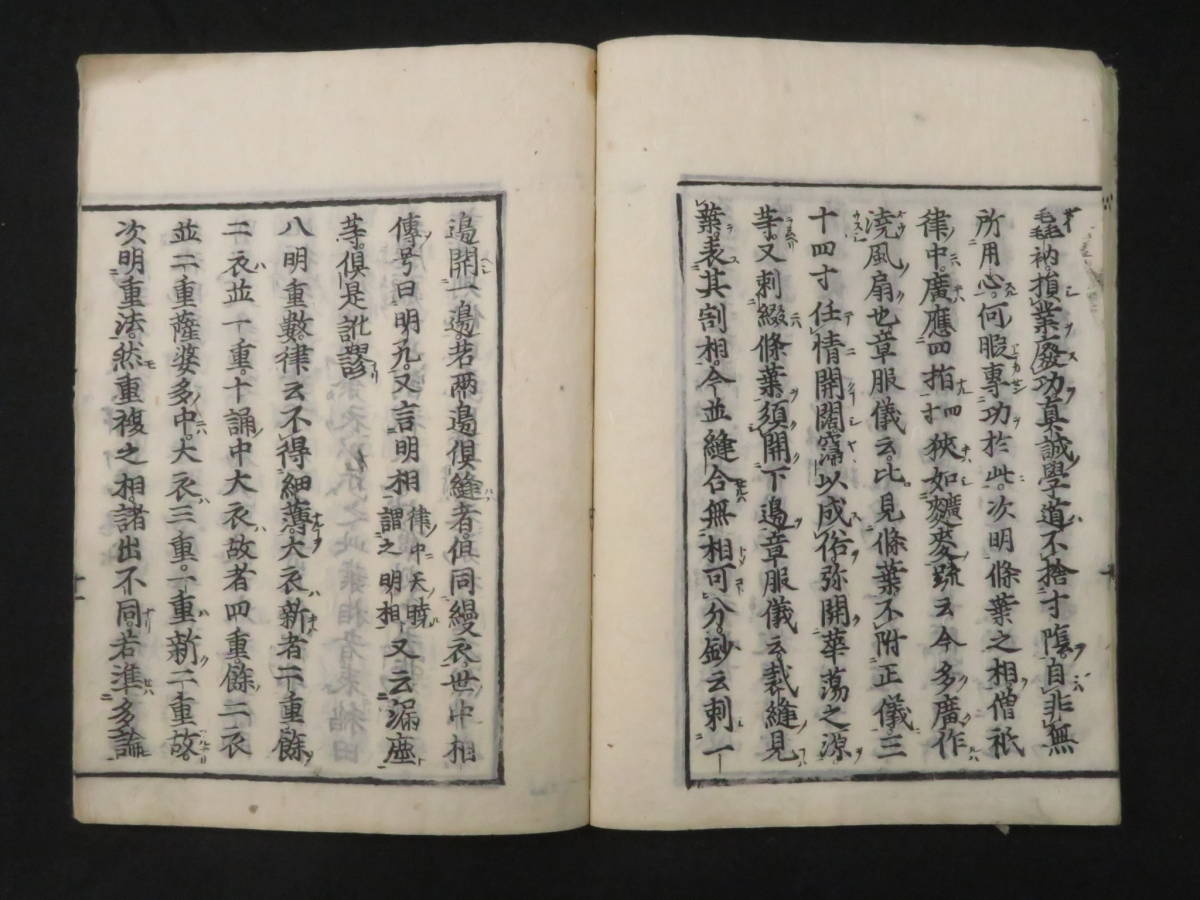 毳衲。損業廢功真誠學道不捨寸隂自非無
所用心。何暇專功於此。次明條葉之相僧祇
律中。廣應四指四寸狹如䵃麥疏云今多廣作
澆風扇也章服儀云。比見條葉不附正儀。三
十四寸任情開闊以成俗弥開華蕩之源。
等。又刺綴條葉須開下邊章服儀云裁縫見
葉。表其割相。今並縫合無相可分。鈔云刺一
邊開一邊。若兩邊俱縫者。但同縵衣世中相
傳号曰明孔。又言明相律中天曉謂之明相又云漏塵
等。俱是訛謬
八明重數。律云不得細薄大衣新者二重餘
二衣並一重。十誦中大衣故者四重餘二衣
並二重薩婆多中。大衣三重。一重新二重故。
次明重法。然重複之相。諸出不同。若準多論